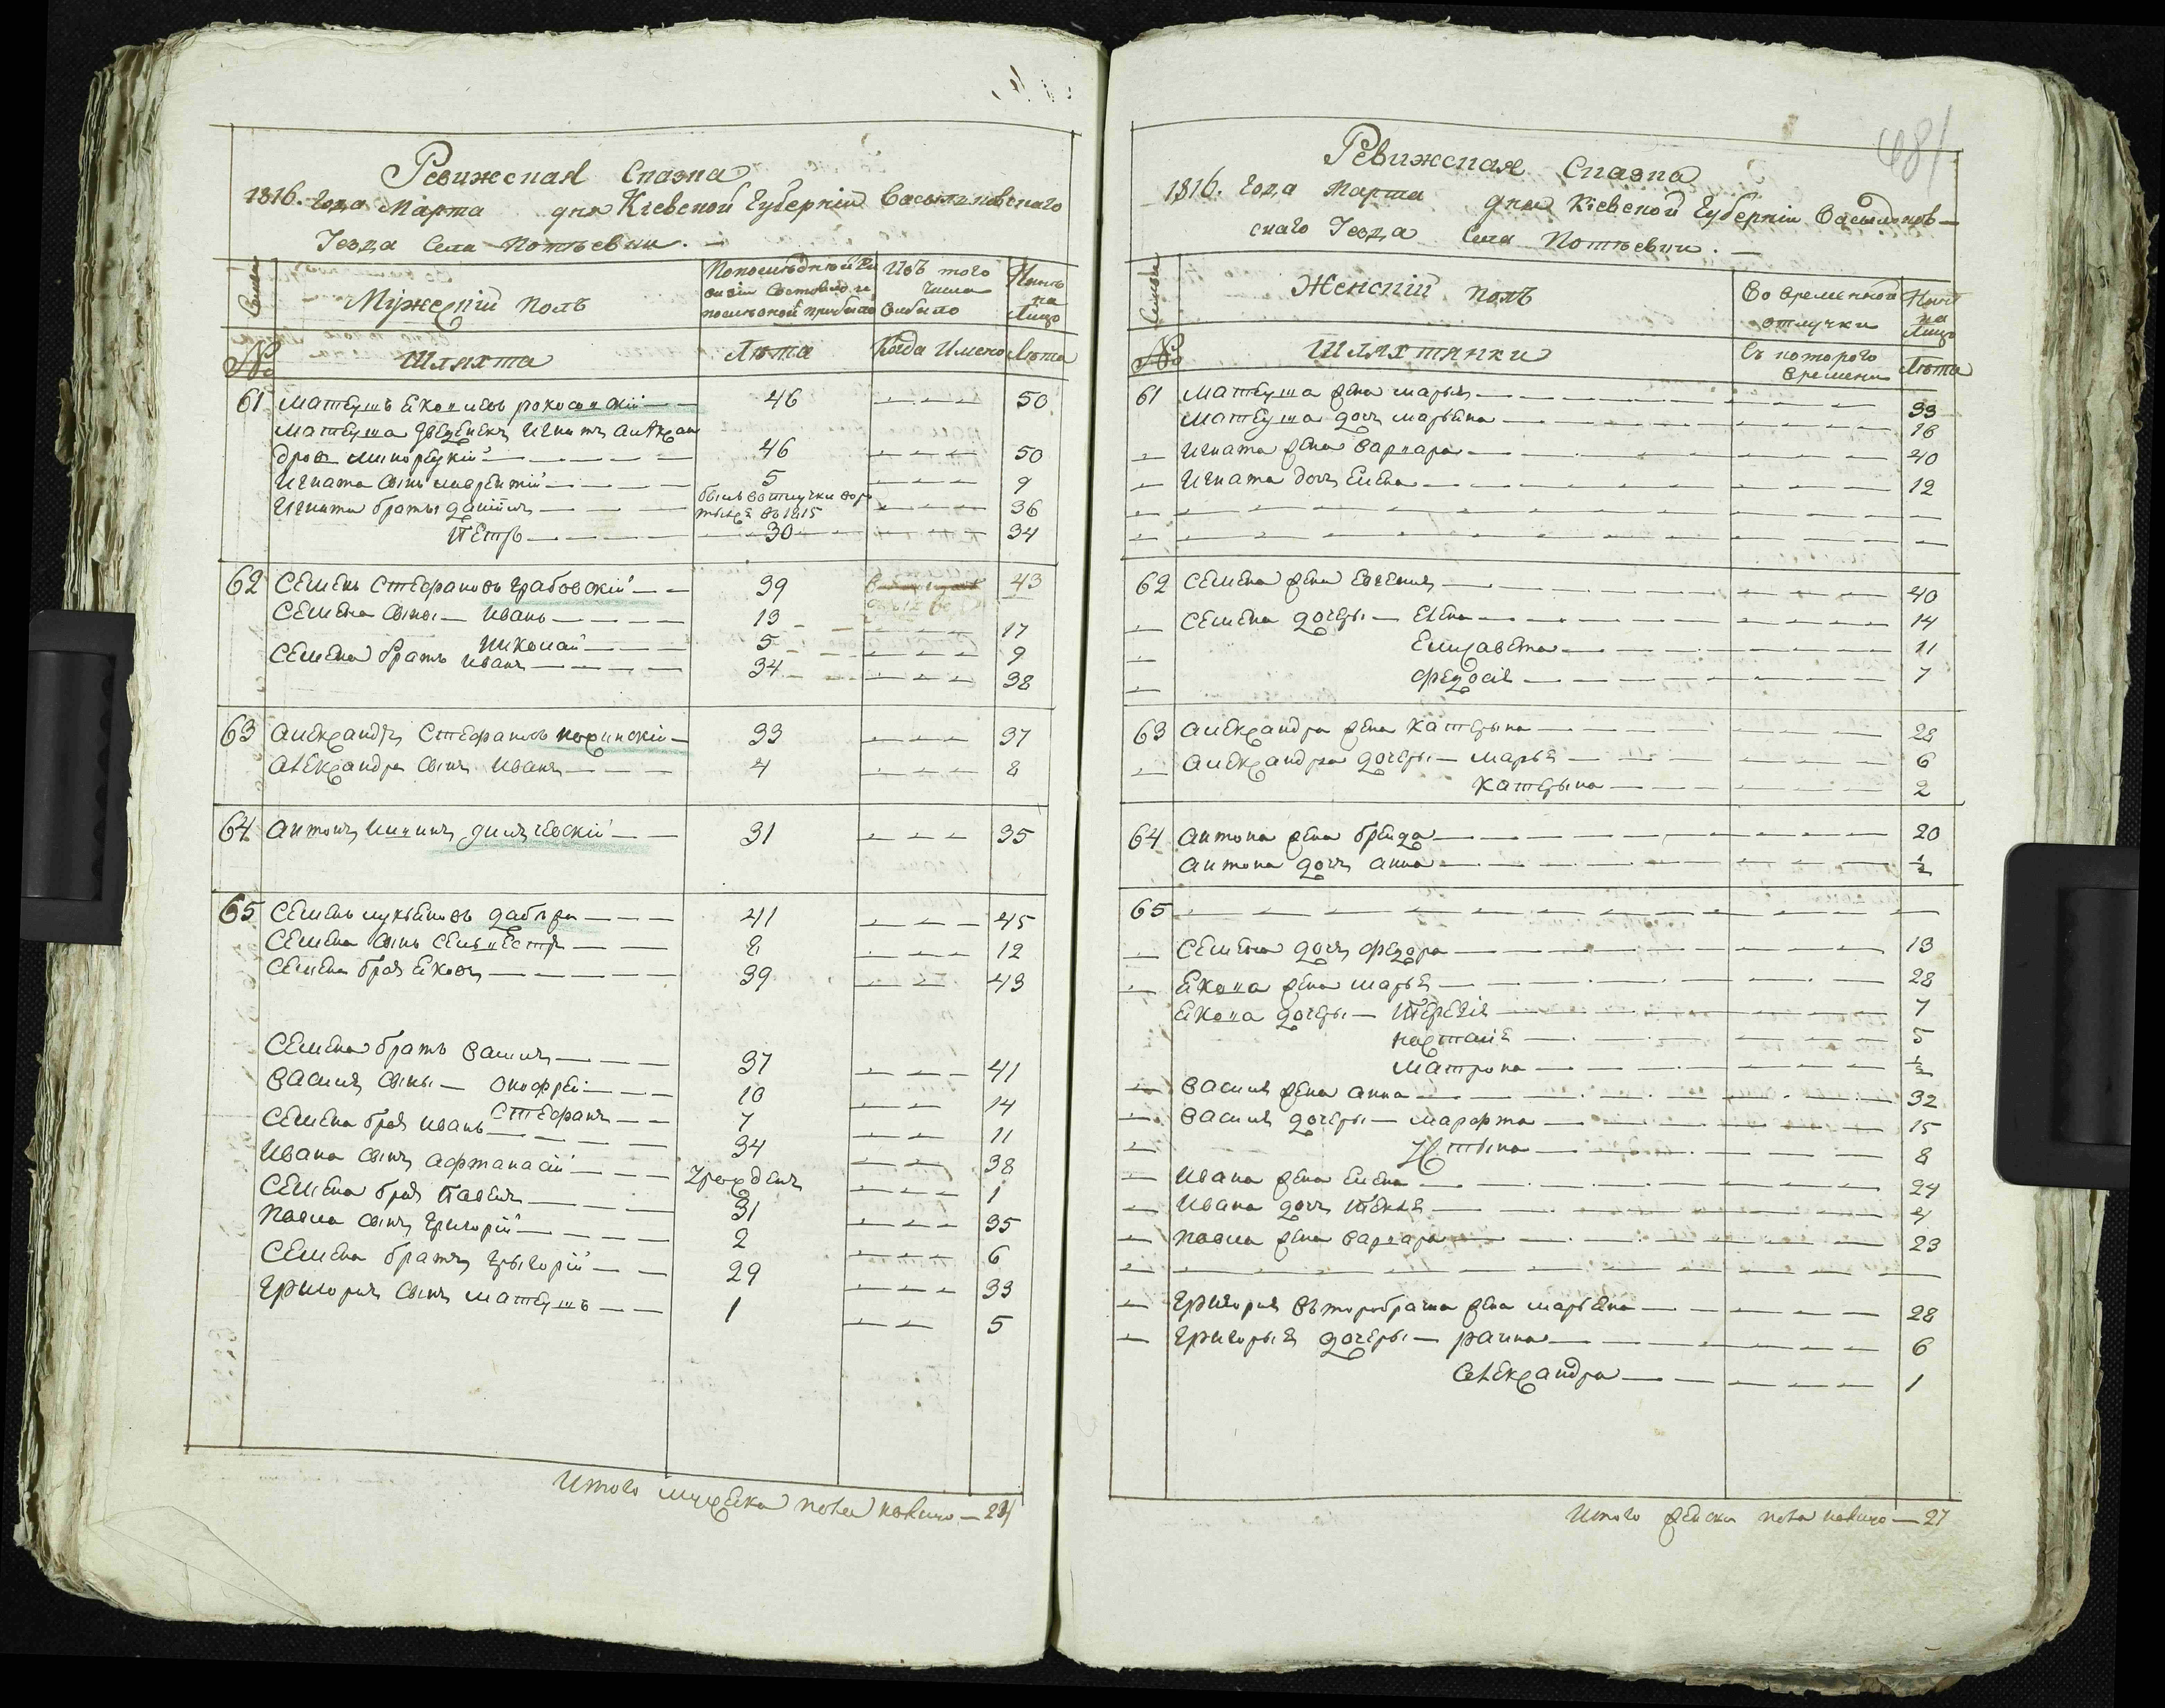 Ревижская Сказка
1816. года Марта дня Кіевской Губерніи Васильковскаго
Уезда Села Потѣевки. —
Мужескій полъ
Изъ того
числа
выбыло
на
лицо
№
Шляхта
Лѣта
Когда Имено
Лѣта
61 Матеушъ Яковлевъ рокосовскій — 46 — — — 50
Матеуша Игнатъ Алексан
дровъ 46 — — — 50
Игната сынъ лаврентій — — — — 5 — — — 9
Игната браты данійлъ — — — былъ въ отлучки
въ 1815 — — — 36
Петръ — — — — 30 — — — 34
62 Семенъ Стефановъ грабовскій — — 39 43
Семена сыны — Иванъ — — — — 13 — — — 17
Николай — — — 5 — — — 9
Семена братъ Иванъ — — — — 34 — — — 38
63 Александръ Стефановъ — 33 — — — 37
Александра сынъ Иванъ — — — 4 — — — 8
64 Антонъ — — 31 — — — 35
65 Семенъ лукьяновъ — — — 41 — — — 45
Семена сынъ — — 8 — — — 12
Семена братъ Яковъ — — — — — 39 — — — 43
Семена братъ Василь — — — 37 — — — 41
Василя сыны — Онофрей — — — 10 — — 14
Стефанъ — — 7 — — 11
Семена братъ Иванъ — — — — 34 — — 38
Ивана сынъ Афтанасій — — — — — — 1
Семена братъ Павелъ — — — 31 — — — 35
Павла сынъ Григорій — — — — 2 — — — 6
Семена братъ Грыгорій — — 29 — — — 33
Григорія сынъ Матеушъ — — 1 — — 5
Итого мужеска пола налицо — 24
481
Ревижская Сказка
1816. Года Марта дня Кіевской Губерніи Васильков—
скаго Уезда Села Потѣевки. —
Женскій полъ
Во временной
отлучки
на
лицо
№
Шляхтянки
Съ которого
времени
Лѣта
61 Матеуша жена марья — — — 33
Матеуша дочь марьяна — — — 16
— Игната жена варвара — — — 40
— Игната дочь Елена — — — 12
— — — — — —
— — — — — —
62 Семена жена Евгения — — — 40
— Семена дочеры — Елена — — — 14
— Елизавета — — — 11
— Федосія — — — 7
63 Александра жена Катерына — — — 28
— Александра дочеры — марья — — — 6
Катерына — — — 2
64 Антона жена — — — 20
Антона дочь Анна — — — ½
65 — — — — — —
— Семена дочь Федора — — — 13
— Якова жена марья — — — 28
Якова дочеры — — — — 7
настасія — — — 5
Матрона — — — ½
— Василя жена Анна — — — 32
— Василя дочеры — марфта — — — 15
— Устына — — — 8
— Ивана жена Елена — — — 24
— Ивана дочь Текля — — — 4
— Павла жена варвара — — — 23
— — — — — —
— Григорія жена марьяна — — — 28
— Григорыя дочеры — — — — 6
Александра — — — 1
Итого женска пола налицо — 27